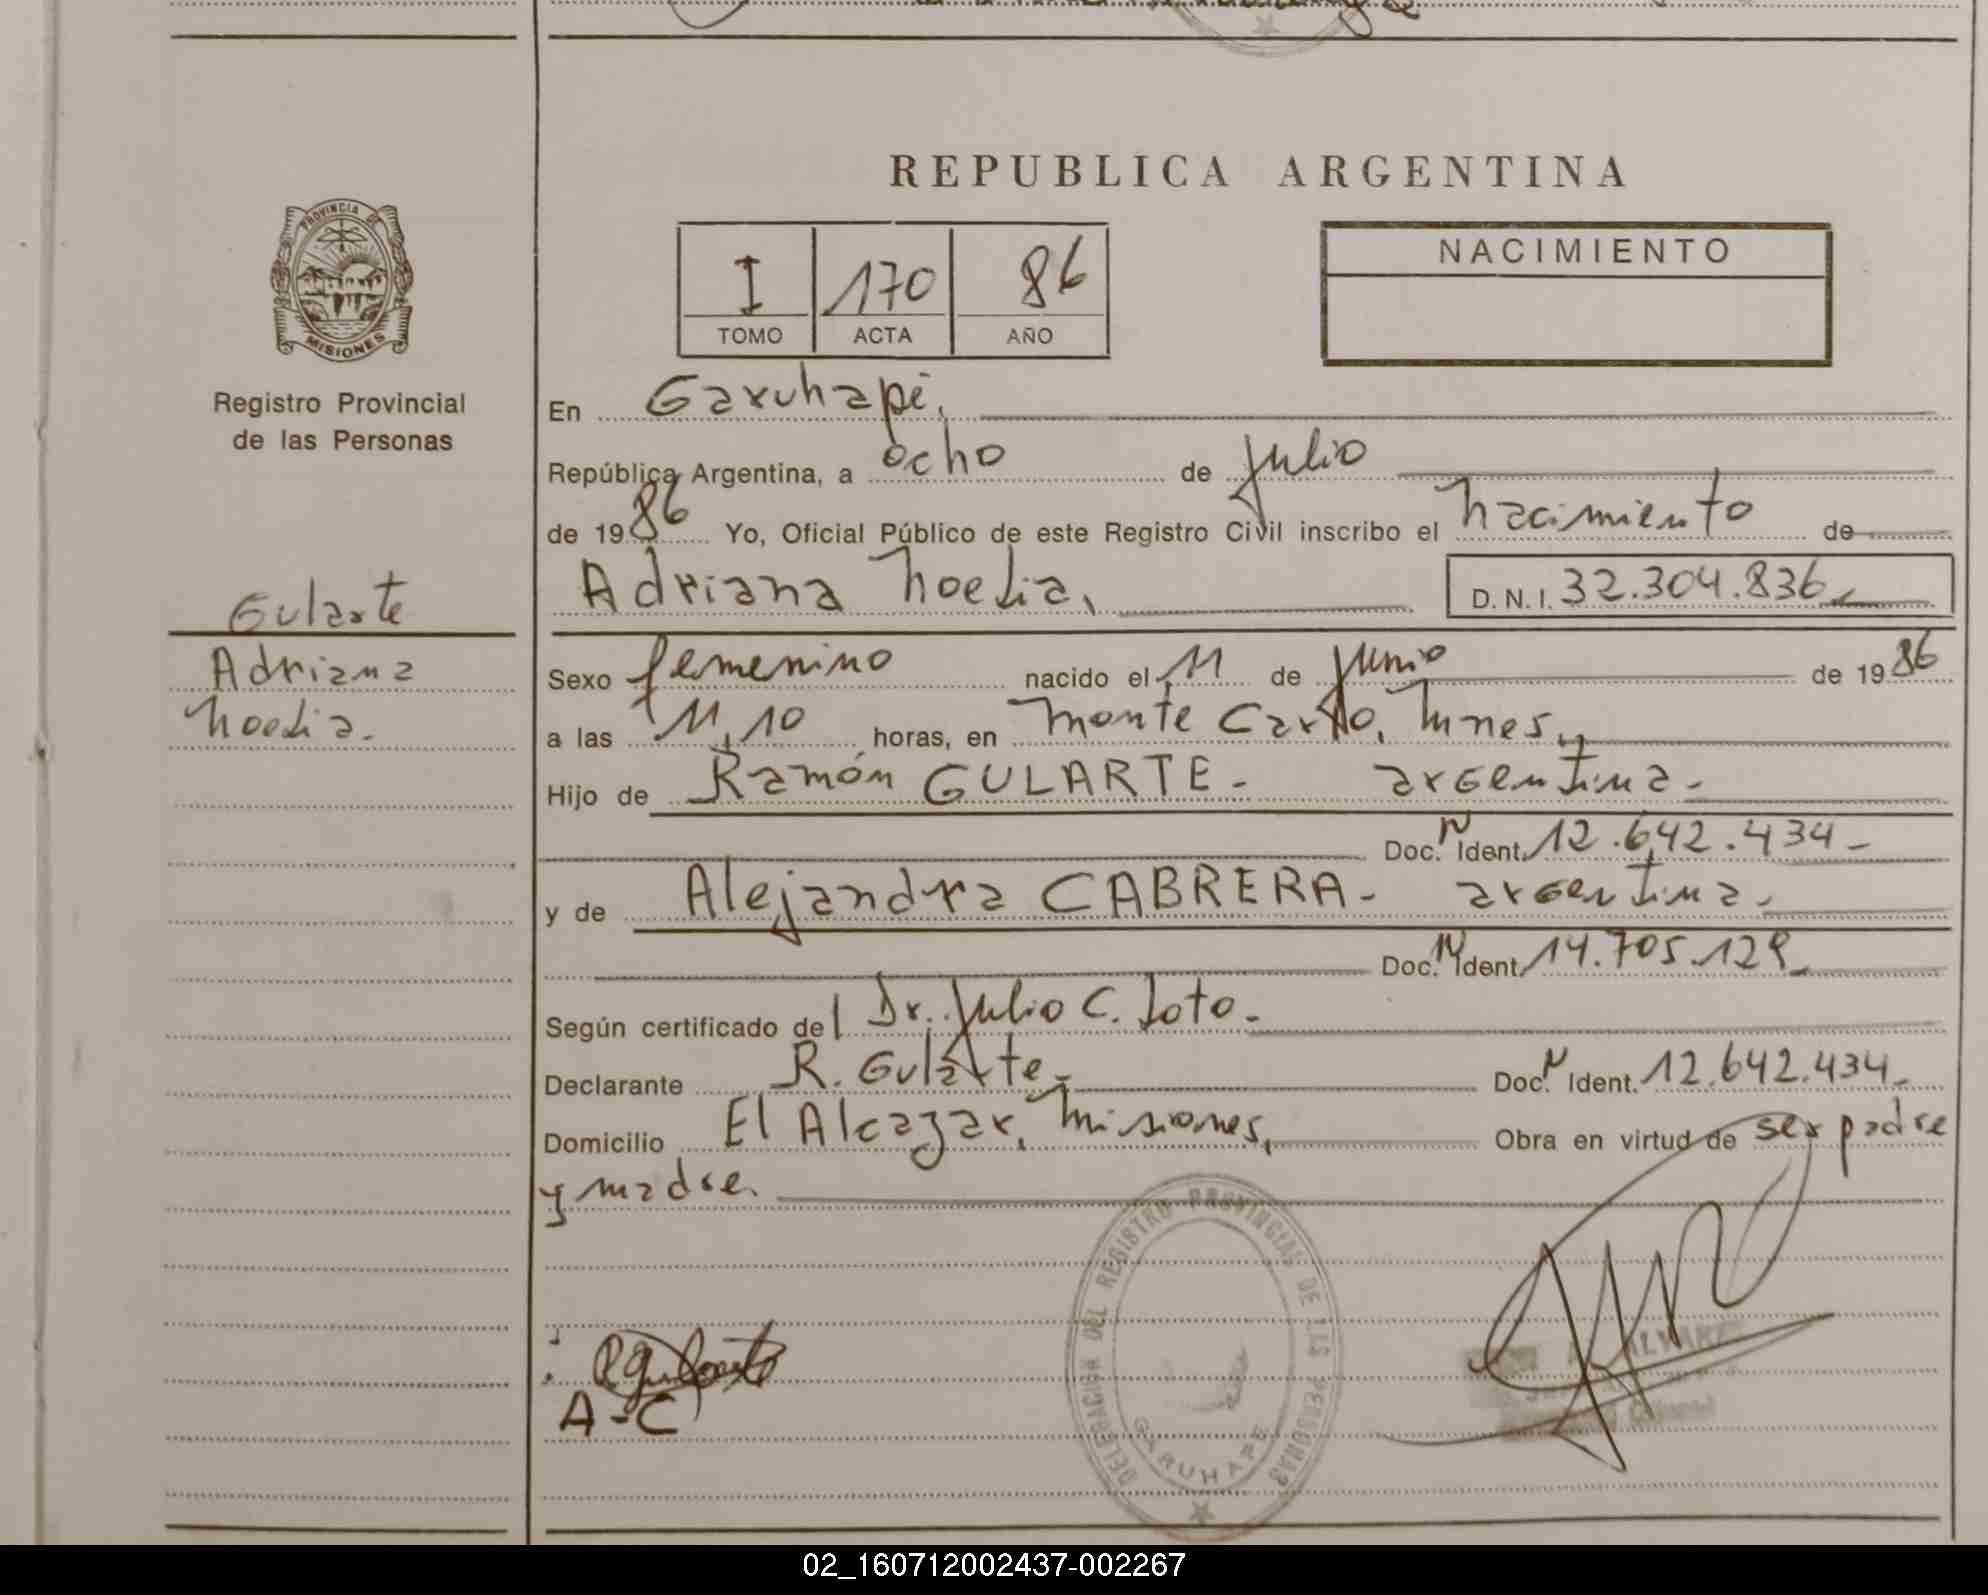 REPUBLICA ARGENTINA
PROVINCIA DE
MISIONES
Registro Provincial
de las Personas
I 170 86
TOMO ACTA AÑO
NACIMIENTO
En Garuhapé,
República Argentina, a ocho de julio
de 1986 Yo, Oficial Público de este Registro Civil inscribo el nacimiento de
Adriana Noelia, D.N.I. 32.304.836
Gularte
Adriana
Noelia.
Sexo femenino nacido el 11 de junio de 1986
a las 11,10 horas, en Monte Carlo, Mnes,
Hijo de Ramón GULARTE- argentina-
Doc. N Ident. 12.642.434-
y de Alejandra CABRERA- argentina-
Doc. N Ident. 14.705.129-
Según certificado del Dr. Julio C. Soto-
Declarante R. Gularte- Doc. N Ident. 12.642.434-
Domicilio El Alcazar, Misiones, Obra en virtud de ser padre
y madre.
DELEGACION DEL REGISTRO PROVINCIAL DE LAS PERSONAS
GARUHAPE
R Gularte
A-C
ALVAREZ
02_160712002437-002267